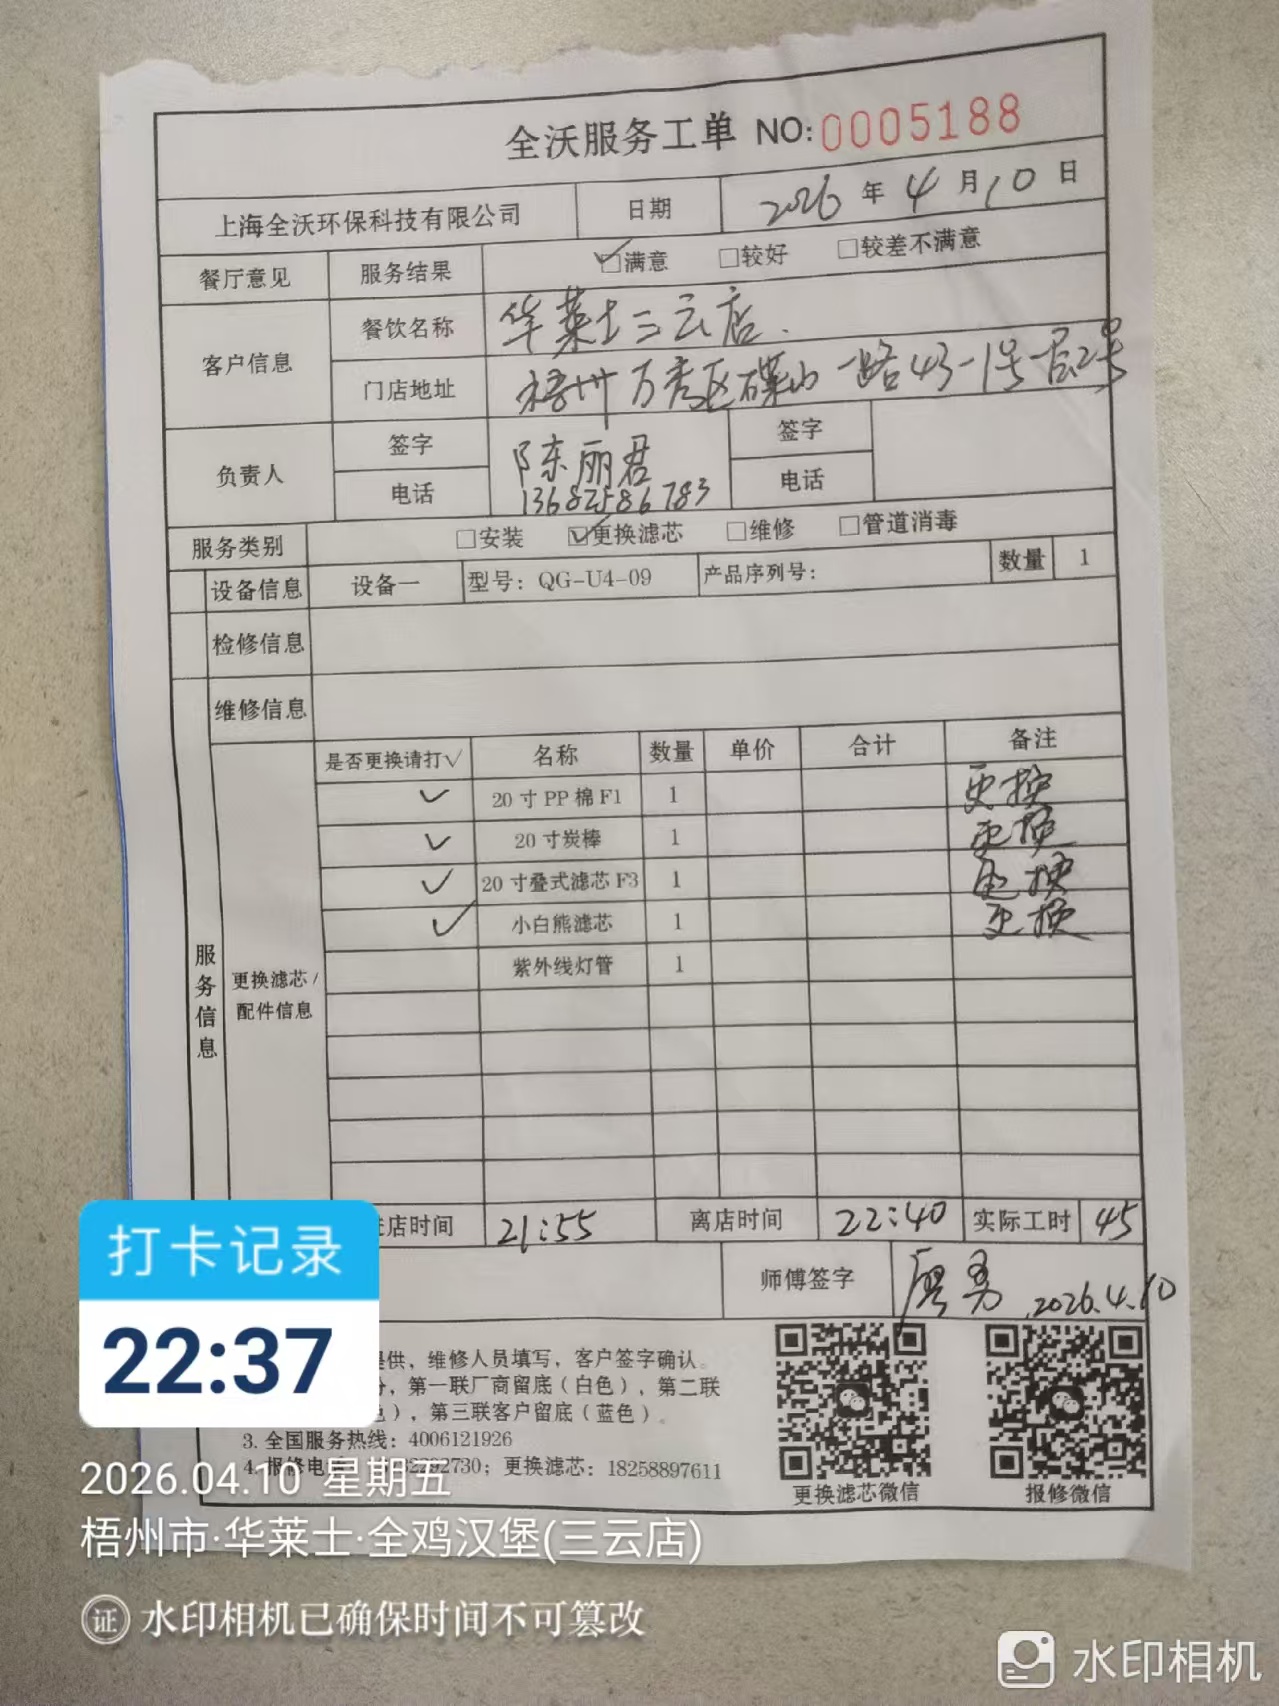 全沃服务工单 NO:0005188
上海全沃环保科技有限公司 日期 2026年4月10日
餐厅意见 服务结果 ☑满意 □较好 □较差不满意
客户信息 餐饮名称 华莱士三云店.
门店地址 梧州万秀区碟山一路43-1号一层2号
负责人 签字 陈丽君 签字
电话 13682586783 电话
服务类别 □安装 ☑更换滤芯 □维修 □管道消毒
设备信息 设备一 型号: QG-U4-09 产品序列号: 数量 1
检修信息
维修信息
服务信息
更换滤芯/配件信息
是否更换请打√ 名称 数量 单价 合计 备注
✓ 20寸PP棉F1 1 更换
✓ 20寸炭棒 1 更换
✓ 20寸叠式滤芯F3 1 更换
✓ 小白熊滤芯 1 更换
紫外线灯管 1
店时间 21:55 离店时间 22:40 实际工时 45
师傅签字 廖勇 2026.4.10
供，维修人员填写，客户签字确认。
，第一联厂商留底（白色），第二联
），第三联客户留底（蓝色）。
3. 全国服务热线：4006121926
4. 报修电 2730；更换滤芯：18258897611
更换滤芯微信 报修微信
打卡记录
22:37
2026.04.10 星期五
梧州市·华莱士·全鸡汉堡(三云店)
证 水印相机已确保时间不可篡改
水印相机